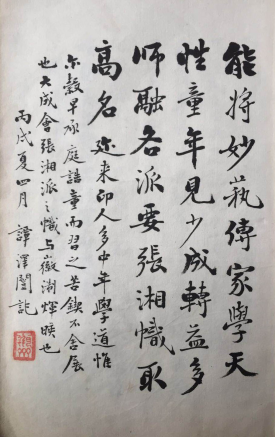 能将妙蓺傳家學天
性童年見少成轉益多
師融各派要張湘幟取
高名 迩来印人多中年學道惟
尔穀早承庭誥童而習之苦鍥不舍展
也大成會張湘派之幟与徽浙煇暎也
丙戌夏四月 譚澤闓記